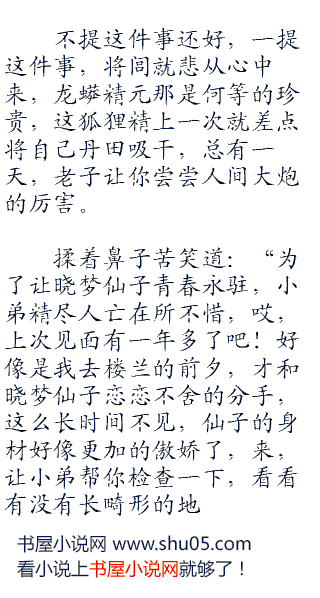 不提这件事还好，一提
这件事，将闾就悲从心中
来，龙蟒精元那是何等的珍
贵，这狐狸精上一次就差点
将自己丹田吸干，总有一
天，老子让你尝尝人间大炮
的厉害。
揉着鼻子苦笑道：“为
了让晓梦仙子青春永驻，小
弟精尽人亡在所不惜，哎，
上次见面有一年多了吧！好
像是我去楼兰的前夕，才和
晓梦仙子恋恋不舍的分手，
这么长时间不见，仙子的身
材好像更加的傲娇了，来，
让小弟帮你检查一下，看看
有没有长畸形的地
书屋小说网 www.shu05.com
看小说上书屋小说网就够了！